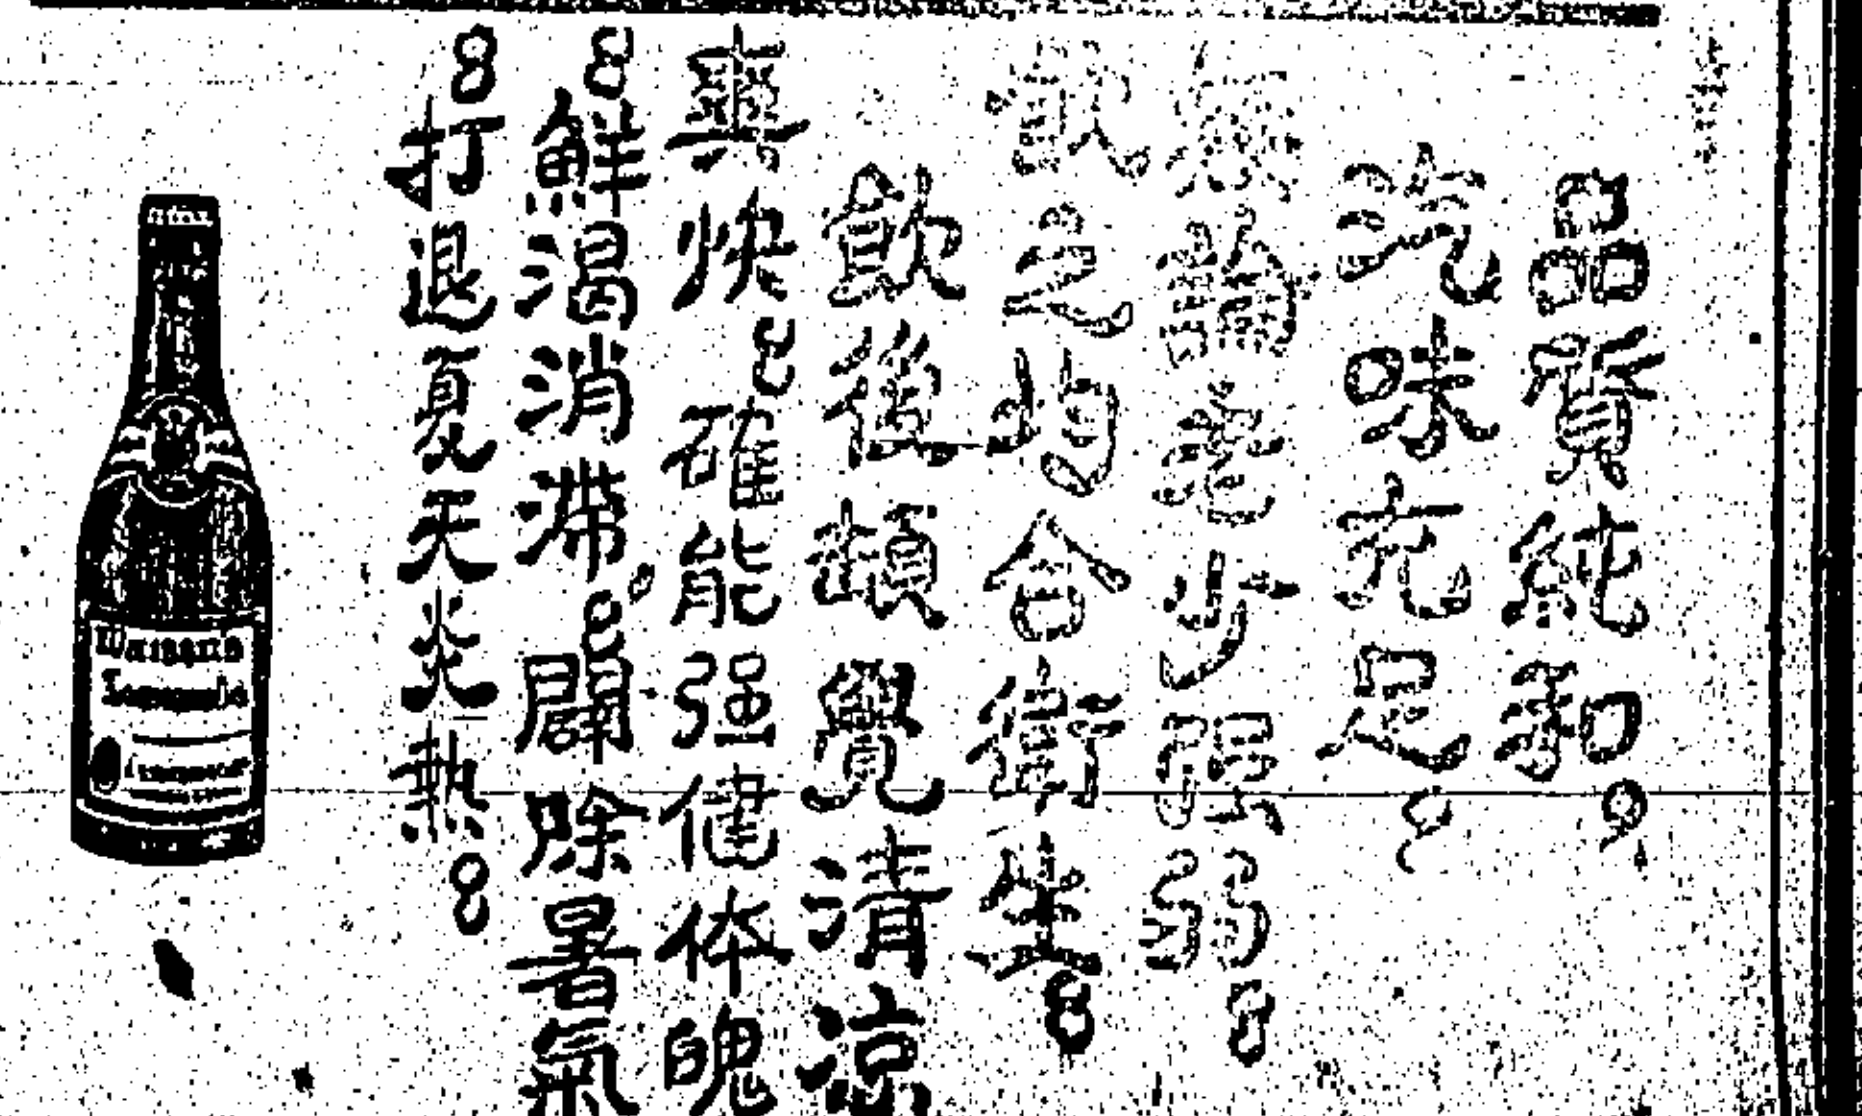 品質純和
汽味充足
無論老少强弱
飲之均合衛生
飲後頓覺清涼
爽快確能强健体魄
鮮渴消滯闢除暑氣
打退夏天炎熱
Watson's
Lemonade